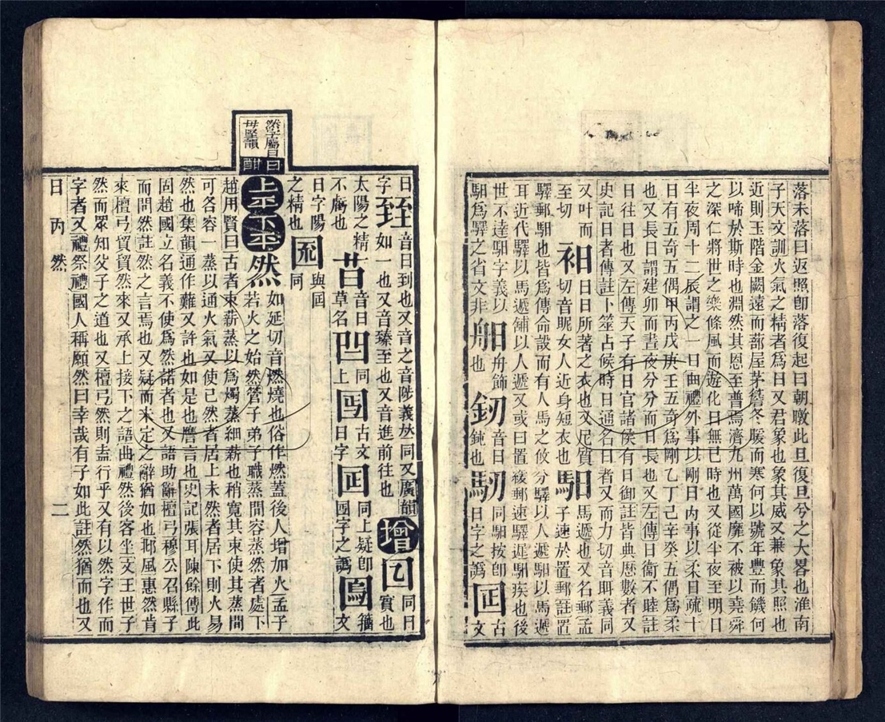 落未落曰返照卽落復起曰朝暾此旦復旦兮之大畧也淮南
子天文訓火氣之精者爲日又君象也象其威又兼象其照也
近則玉階金闕遠而蔀屋茅簷冬暖而寒何以號年豊而饑何
以啼於斯時也淵然其恩至普焉濟九州萬國靡不被以堯舜
之深仁將世之樂條風而遊化日無已時也又從半夜至明日
半夜周十二辰謂之一日曲禮外事以剛日内事以柔日疏十
日有五奇五偶甲丙戊庚壬五奇爲剛乙丁己辛癸五偶爲柔
也又長日謂建卯而晝夜分分而日長也又左傳日衞不睦註
日往日也又左傳天子有日官諸侯有日御註皆典歴數者又
史記日者傳註卜筮占候時日通名日者又而力切音眲義同
又叶而
至切
衵
日日所著之衣也又足質
切音昵女人近身短衣也
馹
馬遞也又名郵孟
子速於置郵註置
驛郵馹也皆爲傳命設而有人馬之攸分驛以人遞馹以馬遞
耳近代驛以馬遞舖以人遞又或曰置核郵速驛遲馹疾也後
世不達馹字義以
馹爲驛之省文非
䑤
舟飾
也
釰
音日
鈍也
䭿
同馹按卽
日字之譌
囸
古
文
日
字
臸
音日到也又音之音陟義𠀤同又廣韻
如一也又音臻至也又音進前往也
增
囘
同日
實也
太陽之精
不虧也
苢
音日
草名
凹
同
上
古文
日字
同上疑卽
圓字之譌
籀
文
日字陽
之精也
與囸
同
上平下平
然
如延切音燃燒也俗作燃蓋後人增加火孟子
若火之始然管子弟子職蒸間容蒸然者處下
趙用賢曰古者束薪蒸以爲燭蒸細薪也稍寬其束使其蒸間
可各容一蒸以通火氣又使已然者居上未然者居下則火易
然也集韻通作難又許也如是也譍言也史記張耳陳餘傳此
固趙國立名義不使爲然諾者也又語助辭檀弓穆公召縣子
而問然註然之言焉也又疑而未定之辭猶如也邶風惠然肯
來檀弓貿貿然來又承上接下之語曲禮然後客坐文王世子
然而眾知父子之道也又檀弓然則盍行乎又有以然字作而
字者又禮祭禮國人稱願然曰幸哉有子如此註然猶而也又
日 丙 然 二